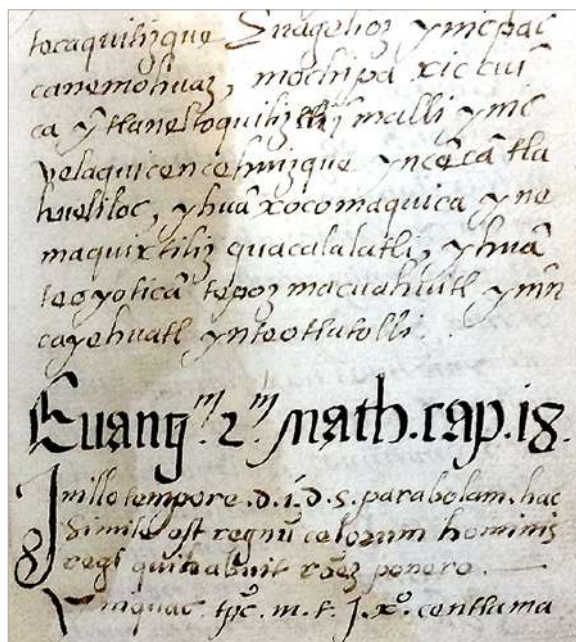 tocaquilizque Euãgelioz, ynicpac
canemohuaz, mochipa xiccui
ca ỹ tlaneltoquiliz malli ynic
velaquicencehuizque yncẽcã tla
hueliloc, yhuã xocomaquica yne
maquixtiliz quacalalatli, yhuã
teoyoticã tepoz macuahuitl ymn
cayehuatl ynteotlatolli.
Euang.ᵐ 2.ᵐ math. cap. 18.
Inillo tempore .d.i.d.s. parabolam. hac
Simile est regnũ celorum hominis
regi qui
ponere.
yniquac. tpc̃. m. t. J. xº. centlama